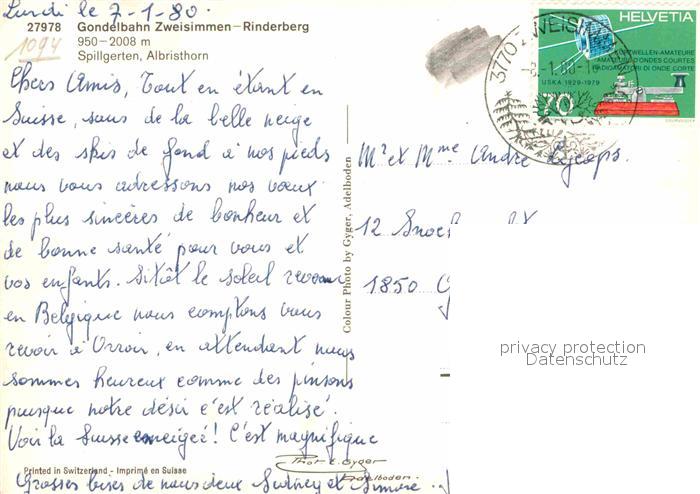 Lundi le 7-1-80.
27978 Gondelbahn Zweisimmen–Rinderberg
1094
950–2008 m
Spillgerten, Albristhorn
Chers Amis, Tout en étant en
Suisse, sous de la belle neige
et des skis de fond à nos pieds
nous vous adressons nos vœux
les plus sincères de bonheur et
de bonne santé pour vous et
vos enfants. Sitôt le soleil revenu
en Belgique nous comptons vous
revoir à Orroir, en attendant nous
sommes heureux comme des pinsons
puisque notre désir c'est réalisé.
Voir la Suisse enneigée! C'est magnifique
Printed in Switzerland - Imprimé en Suisse
Grosses bises de nous deux Sudney et Simone.
Colour Photo by Gyger, Adelboden
Phot E. Gyger
Adelboden
3770 ZWEISIMMEN
8.-1.80-1
HELVETIA
KURZWELLEN-AMATEURE
AMATEURS D'ONDES COURTES
RADIOAMATORI DI ONDE CORTE
USKA 1929-1979
70
Mr et Mme André
12 Snoe
1850 G
privacy protection
Datenschutz